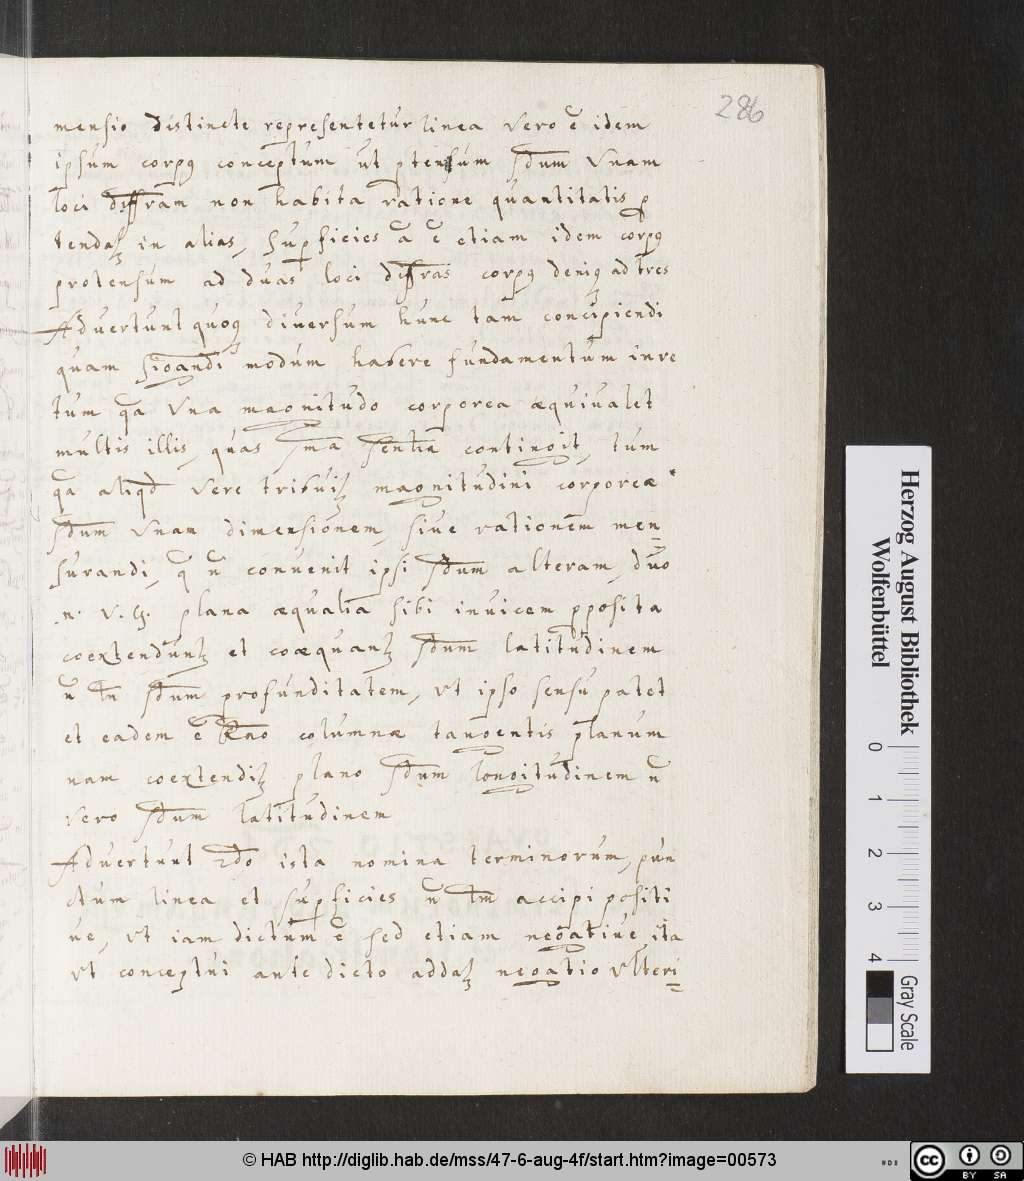 286
mensio distincte representetur linea vero ē idem
ipsum corpꝰ conceptum ut ptensum sdum unam
loci diffram non habita ratione quantitatis p
tendaʒ in alias, superficies ā ē etiam idem corpꝰ
protensum ad duas loci diffras corpꝰ deniqꝫ ad tres
Advertunt quoqꝫ diversum hunc tam concipiendi
quam modum habere fundamentum in re
tum qa una magnitudo corporea æquivalet
multis illis, quas contingit, tum
qa aliqd vere tribuiʒ magnitudini corporeæ
sdum unam dimensionem, sive rationem men
surandi, q n̄ convenit ipsi sdum alteram, duo
.n. v.g. plana æqualia sibi invicem pposita
coextenduntʒ et coæquantʒ sdum latitudinem
n̄ tn sdum profunditatem, ut ipso sensu patet
et eadem ē columnæ tangentis planum
nam coextendiʒ plano sdum longitudinem n̄
vero sdum latitudinem
Advertunt 2do ista nomina terminorum, pun
ctum linea et superficies n̄ tm accipi positi
ve, ut iam dictum ē sed etiam negative ita
ut conceptui ante dicto addaʒ negatio ulteri
Herzog August Bibliothek
Wolfenbüttel
0 1 2 3 4
Gray Scale
© HAB http://diglib.hab.de/mss/47-6-aug-4f/start.htm?image=00573
cc BY SA